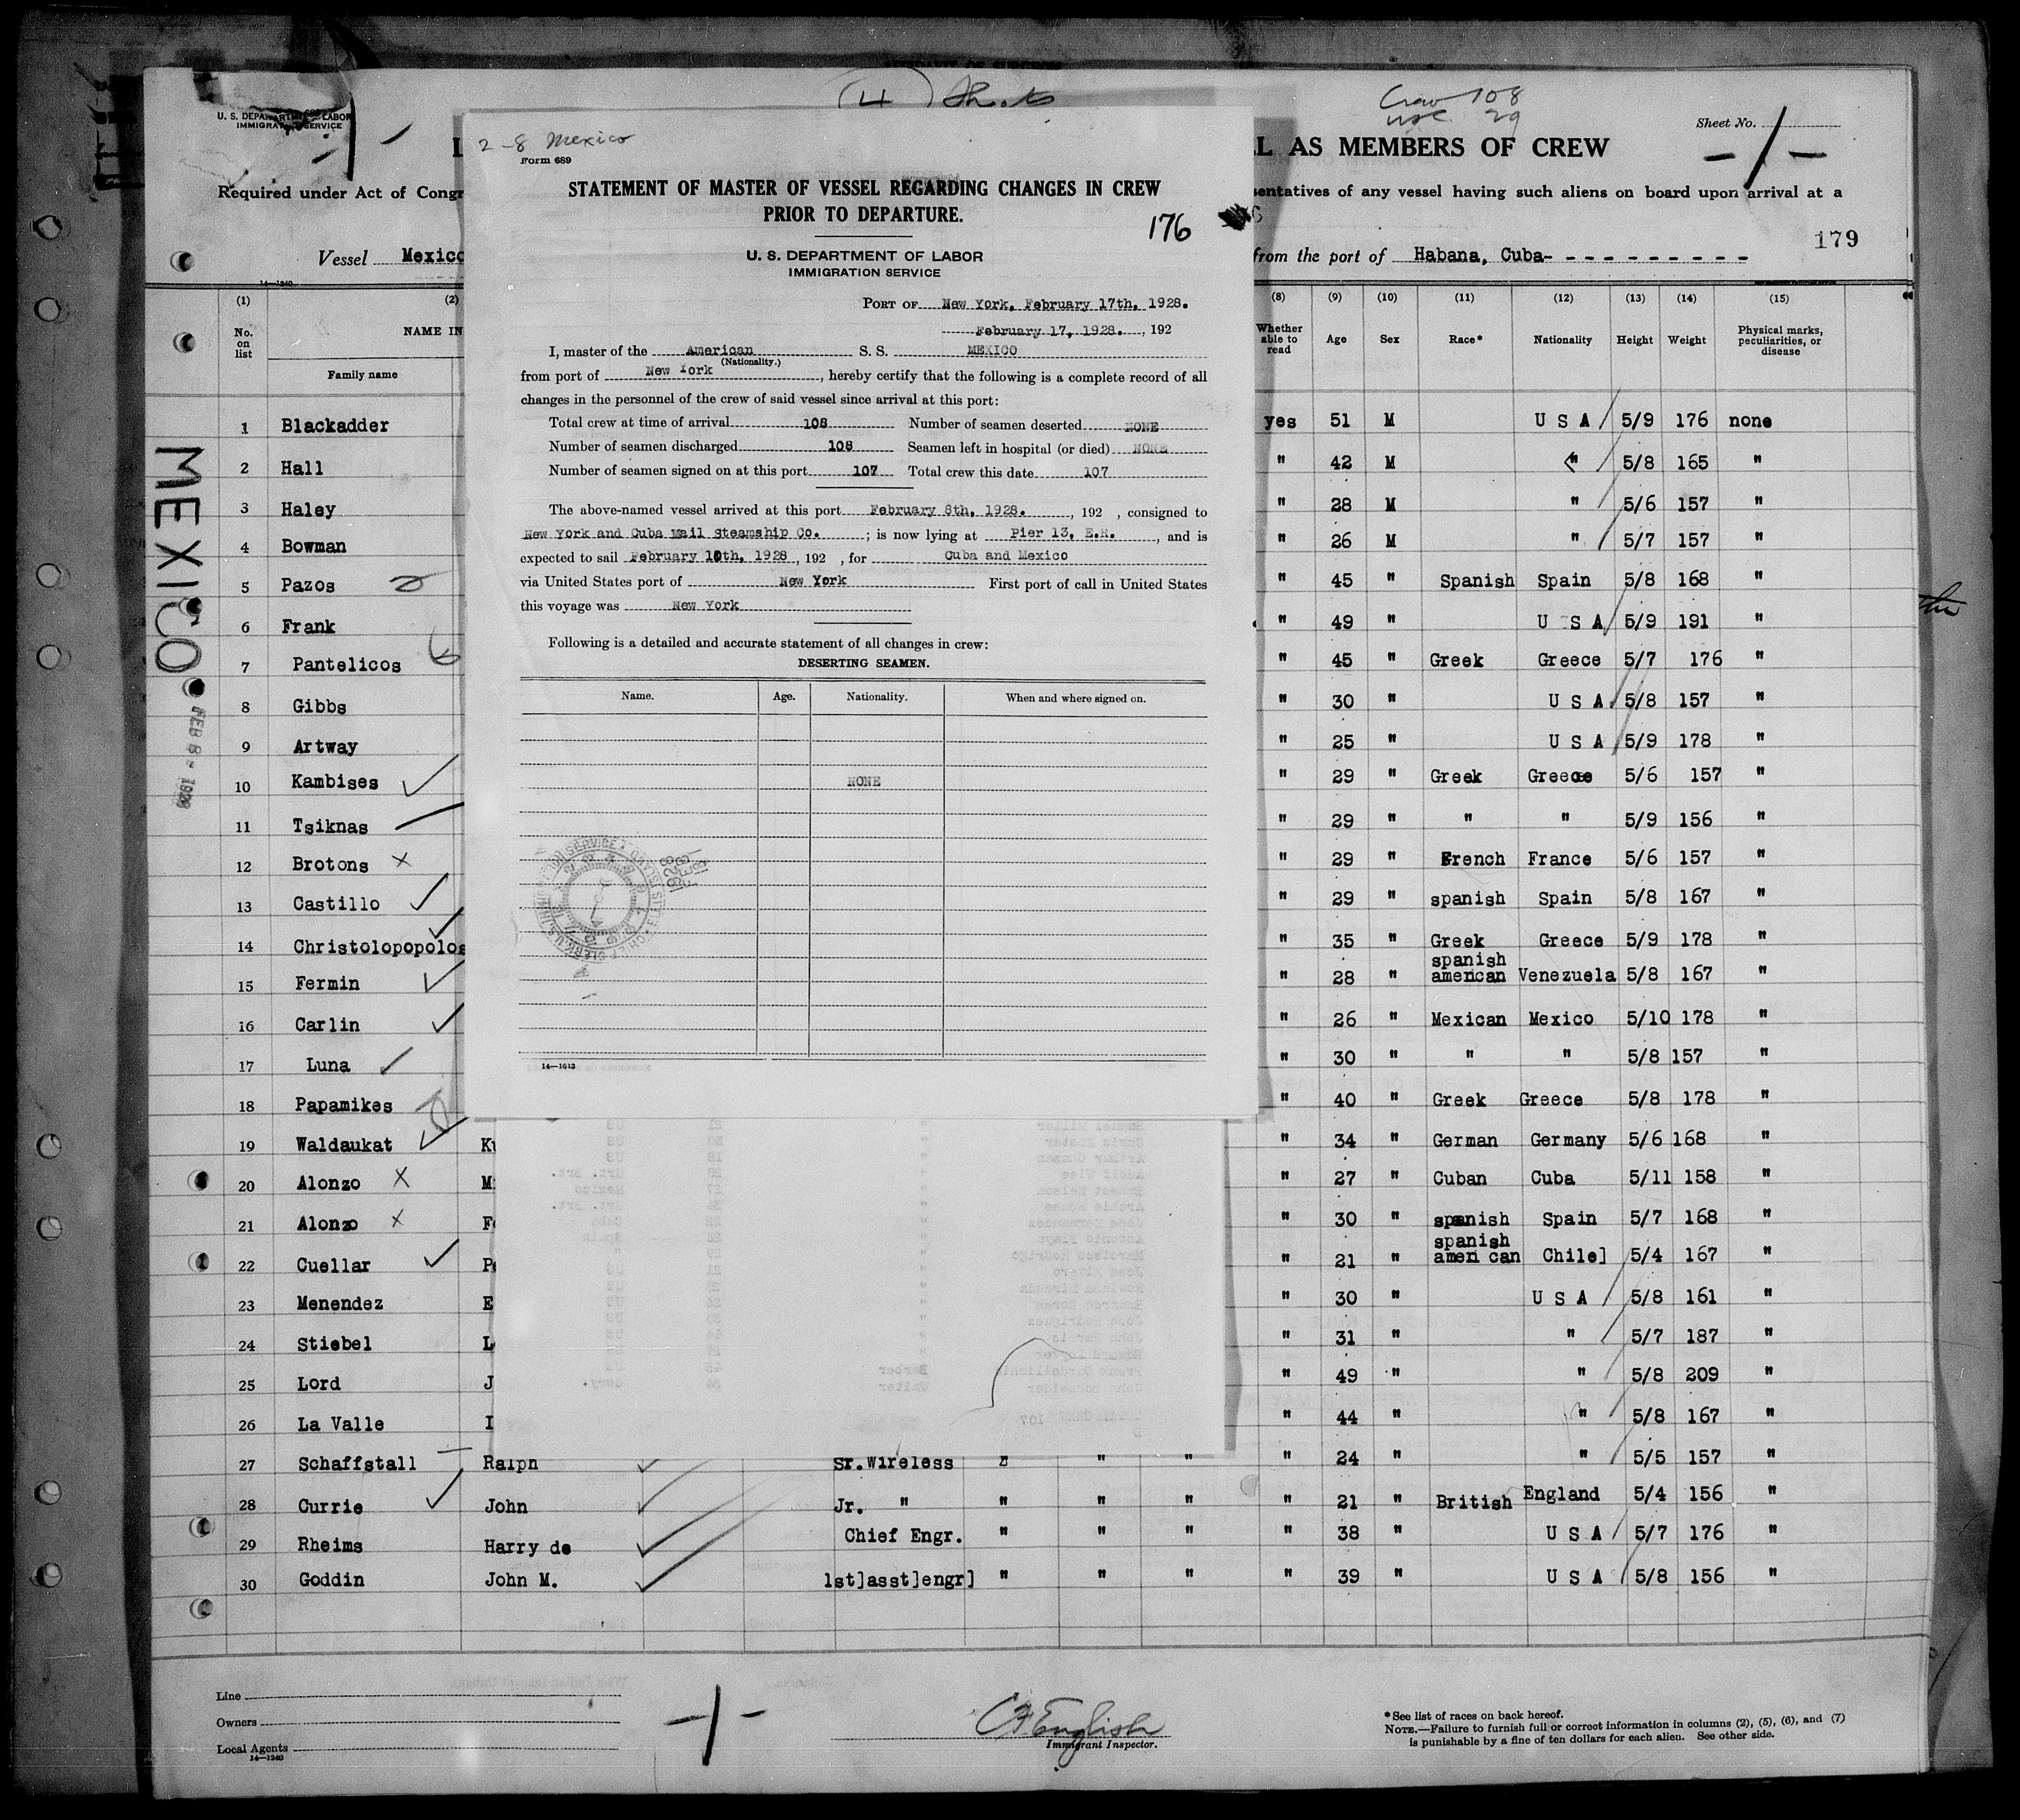 (4) Sheets
Crew 108
usc 29
U. S. DEPARTMENT OF LABOR
IMMIGRATION SERVICE
Sheet No.
-1-
L AS MEMBERS OF CREW
Required under Act of Congr
sentatives of any vessel having such aliens on board upon arrival at a
179
Vessel Mexico
from the port of Habana, Cuba- - - - - - - - - -
14—1240
2-8 Mexico
Form 689
STATEMENT OF MASTER OF VESSEL REGARDING CHANGES IN CREW
PRIOR TO DEPARTURE.
176
U. S. DEPARTMENT OF LABOR
IMMIGRATION SERVICE
PORT OF New York, February 17th, 1928.
February 17, 1928. , 192
I, master of the American S. S. MEXICO
(Nationality.)
from port of New York , hereby certify that the following is a complete record of all
changes in the personnel of the crew of said vessel since arrival at this port:
Total crew at time of arrival 108 Number of seamen deserted NONE
Number of seamen discharged 108 Seamen left in hospital (or died) NONE
Number of seamen signed on at this port 107 Total crew this date 107
The above-named vessel arrived at this port February 8th, 1928. , 192 , consigned to
New York and Cuba Mail Steamship Co. ; is now lying at Pier 13, E.R. , and is
expected to sail February 10th, 1928 , 192 , for Cuba and Mexico
via United States port of New York First port of call in United States
this voyage was New York
Following is a detailed and accurate statement of all changes in crew:
DESERTING SEAMEN.
Name. Age. Nationality. When and where signed on.
NONE
14—1613
MEXICO
FEB 8 - 1928
(1) (2) (8) (9) (10) (11) (12) (13) (14) (15)
No. on list NAME IN Whether able to read Age Sex Race* Nationality Height Weight Physical marks, peculiarities, or disease
Family name
1 Blackadder yes 51 M U S A 5/9 176 none
2 Hall " 42 M " 5/8 165 "
3 Haley " 28 M " 5/6 157 "
4 Bowman " 26 M " 5/7 157 "
5 Pazos " 45 " Spanish Spain 5/8 168 "
6 Frank " 49 " U S A 5/9 191 "
7 Pantelicos " 45 " Greek Greece 5/7 176 "
8 Gibbs " 30 " U S A 5/8 157 "
9 Artway " 25 " U S A 5/9 178 "
10 Kambises " 29 " Greek Greece 5/6 157 "
11 Tsiknas " 29 " " " 5/9 156 "
12 Brotons " 29 " French France 5/6 157 "
13 Castillo " 29 " spanish Spain 5/8 167 "
14 Christolopopolos " 35 " Greek Greece 5/9 178 "
15 Fermin " 28 " spanish american Venezuela 5/8 167 "
16 Carlin " 26 " Mexican Mexico 5/10 178 "
17 Luna " 30 " " " 5/8 157 "
18 Papamikes " 40 " Greek Greece 5/8 178 "
19 Waldaukat Ku " 34 " German Germany 5/6 168 "
20 Alonzo M " 27 " Cuban Cuba 5/11 158 "
21 Alonzo Fe " 30 " spanish Spain 5/7 168 "
22 Cuellar Pe " 21 " spanish american Chile] 5/4 167 "
23 Menendez E " 30 " U S A 5/8 161 "
24 Stiebel L " 31 " " 5/7 187 "
25 Lord J " 49 " " 5/8 209 "
26 La Valle I " 44 " " 5/8 167 "
27 Schaffstall Ralph Sr.Wireless " " " " 24 " " 5/5 157 "
28 Currie John Jr. " " " " " 21 " British England 5/4 156 "
29 Rheims Harry de Chief Engr. " " " " 38 " U S A 5/7 176 "
30 Goddin John M. 1st]asst]engr] " " " " 39 " U S A 5/8 156 "
Line
Owners
Local Agents
14—1240
-1-
C F English
Immigrant Inspector.
*See list of races on back hereof.
NOTE.—Failure to furnish full or correct information in columns (2), (5), (6), and (7)
is punishable by a fine of ten dollars for each alien. See other side.